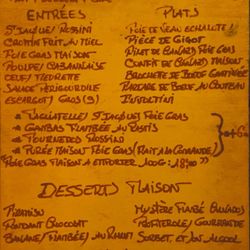 ENTRÉES
PLATS
St Jacques/Rossini
Crottin Frit au Miel
Foie Gras Maison
Poupée Cabanaise
Oeuf/Meurette
Salade Périgourdile
Escargot/Gros (9)
Foie de Veau Echalotte
Pièce de Gigot
Filet de Canard Foie Gras
Confit de Canard Maison
Brochette de Boeuf
Tartare de Boeuf au Couteau
* Tagliatelle/St Jacques Foie Gras
* Gambas Flambée au Pastis
* Tournedos Rossini
* Purée Maison Foie Gras (Fait à la Commande)
"Foie Gras Maison à Emporter 100g: 18€00"
DESSERTS MAISON
Tiramisu
Fondant Chocolat
Banane/Flambée/au Rhum
Mystère Flambé
Profiterole/Gourmande
Sorbet et son Alcool